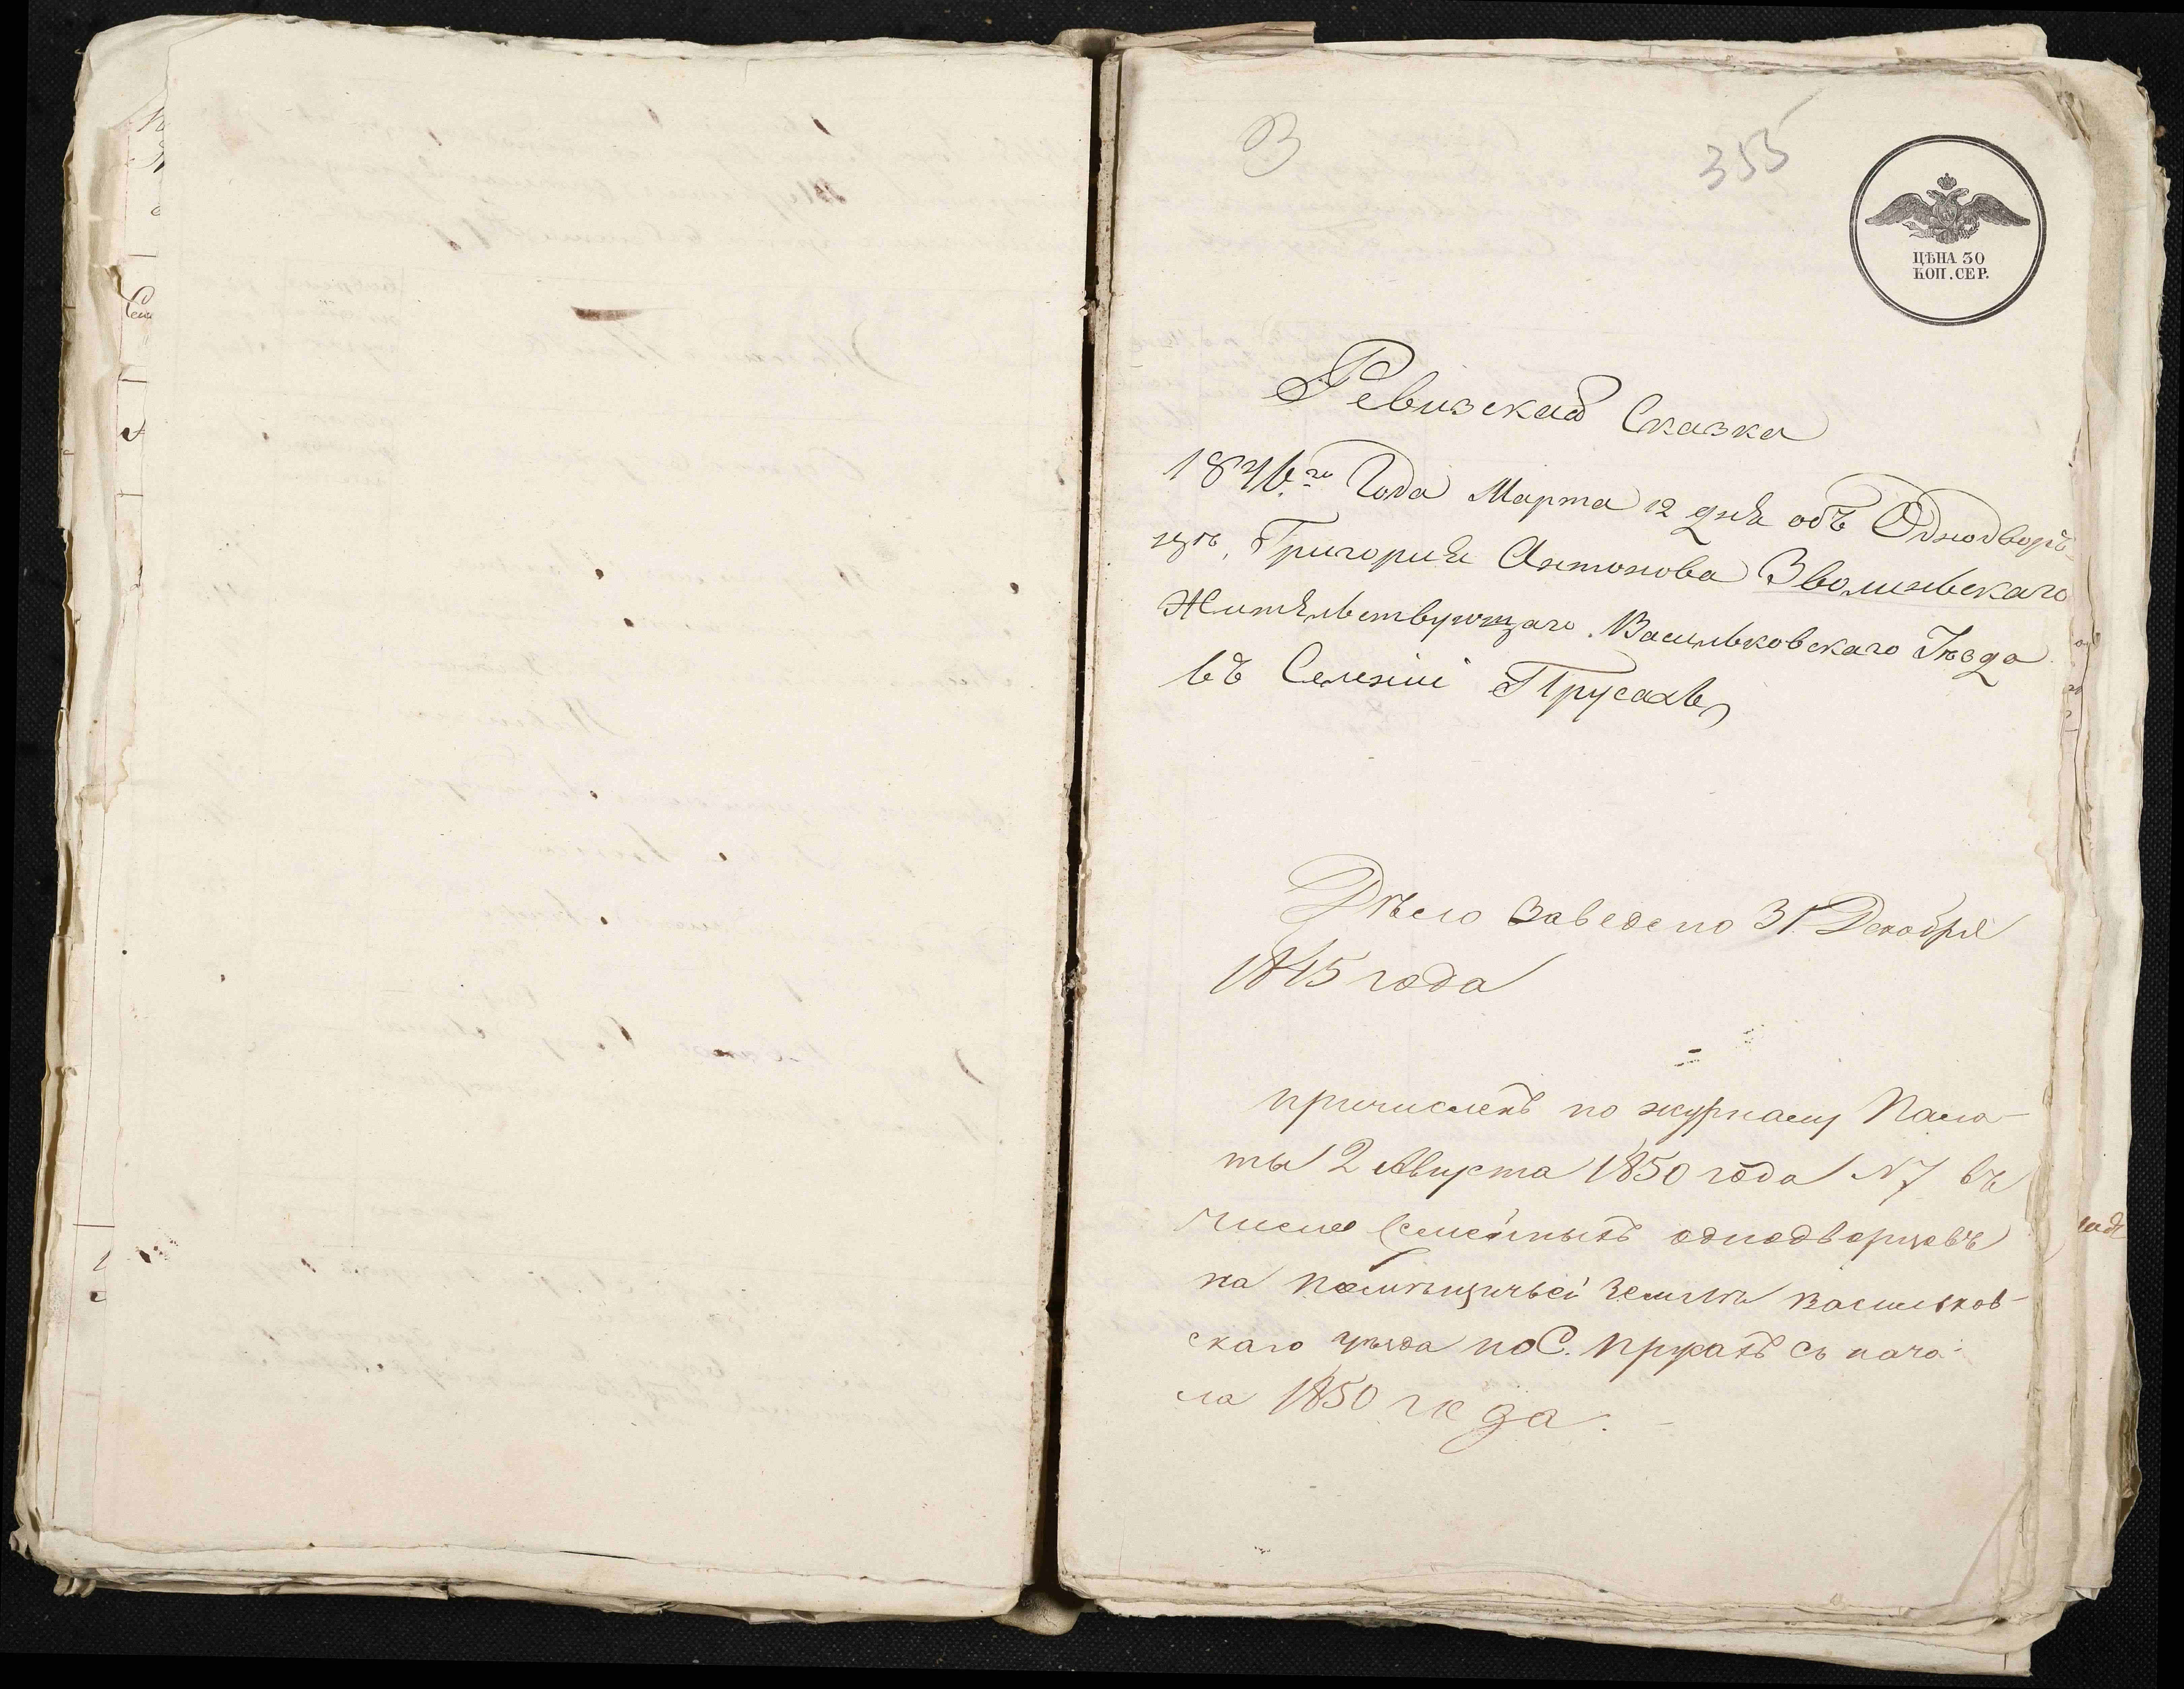 З
355
ЦѢНА 30
КОП. СЕР.
Ревизская Сказка
1846го Года Марта 12 дня объ Однодвор-
цѣ, Григория Антонова Зволиньскаго
Жительствующаго Васильковскаго Уѣзда
въ Селении Прусахъ
Дѣло заведено 31 Декабря
1845 года
причисленъ по журналу Пала-
ты 2 Августа 1850 года N 7 въ
число Семейныхъ однодворцевъ
на помѣщичьей землѣ Васильков-
скаго уѣзда по С. Прусахъ съ нача-
ла 1850 года.